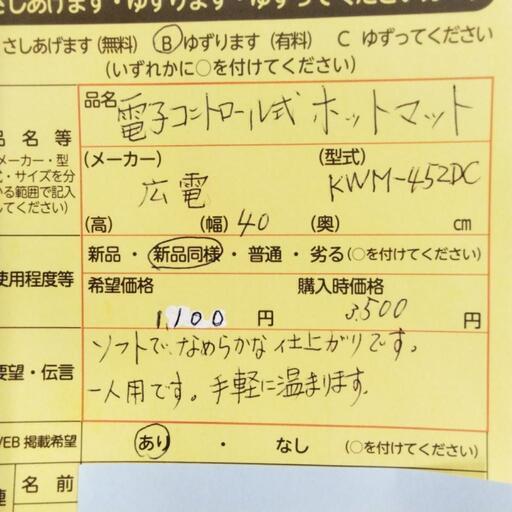 さしあげます・ゆずります・ゆずってください
さしあげます(無料) Ⓑゆずります(有料) C ゆずってください
(いずれかに○を付けてください)
品名 電子コントロール式 ホットマット
品名等
(メーカー) (型式)
広電 KWM-452DC
(高) (幅) 40 (奥) cm
新品・新品同様・普通・劣る(○を付けてください)
使用程度等
希望価格 購入時価格
1,100 円 3,500 円
ソフトで、なめらかな仕上がりです。
一人用です。手軽に温まります。
要望・伝言
WEB 掲載希望 あり ・ なし (○を付けてください)
名前